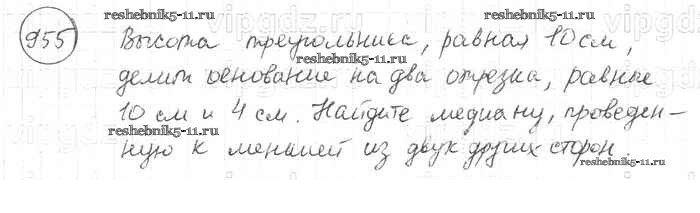 reshebnik5-11.ru
955 Высота треугольника, равная 10 см,
reshebnik5-11.ru
делит основание на два отрезка, равные
10 см и 4 см. Найдите медиану, проведен-
reshebnik5-11.ru
ную к меньшей из двух других сторон.
reshebnik5-11.ru